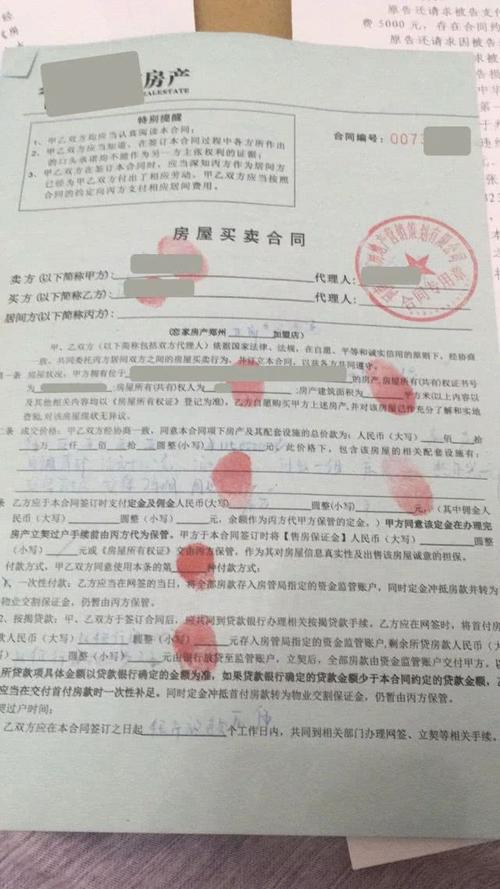 房产
REALESTATE
特别提醒
1、甲乙双方均应当认真阅读本合同;
2、甲乙双方应当知道,在签订本合同过程中各方所作出
的口头承诺均不能作为另一方主张权利的证据;
3、甲乙双方在签订本合同时,应当深知丙方作为居间方
已经为甲乙双方付出了相应劳动。甲乙双方应当按照
合同的约定向丙方支付相应居间费用。
合同编号: 007
房屋买卖合同
卖方(以下简称甲方): 代理人:
买方(以下简称乙方): 代理人:
居间方(以下简称丙方):
(恋家房产郑州 加盟店)
房地产营销策划有限公司
合同专用章
甲、乙双方(以下简称包括双方代理人)依据国家法律、法规,在自愿、平等和诚实信用的原则下,经协商
一致,共同委托丙方居间双方之间的房屋买卖行为,并订立本合同,以兹各方共同遵守。
一条 房屋状况:甲方拥有位于 的房产,房屋所有(共有)权证书号
为 ;房屋所有(共有)权人为 ;房产建筑面积为 平方米(以上内容以
及其他相关内容均以《房屋所有权证》登记为准)。乙方自愿购买甲方上述房产,并对该房屋已作充分了解和实地
查勘,对该房屋现状无异议。
二条 成交价格:甲乙双方经协商一致,同意本合同项下房产及其配套设施的总价款为:人民币(大写) 佰 拾
万 仟 佰 拾 圆整(小写) 此价格下,包含该房屋的相关配套设施有:
条 乙方应于本合同签订时支付定金及佣金人民币(大写) 圆整(小写) 元,(其中佣金人
民币(大写) 圆整(小写) 元,余额作为丙方代甲方保管的定金。)甲方同意该定金在办理完
房产立契过户手续前由丙方代为保管。甲方于本合同签订时将【售房保证金】人民币(大写) 圆整
(小写) 元或《房屋所有权证》交由丙方保管,作为其对房屋信息真实性及出售该房屋诚意的担保。
付款方式,甲乙双方同意使用本条的第 种付款方式:
、一次性付款:乙方应当在网签的当日,将全部房款存入房管局指定的资金监管账户,同时定金冲抵房款并转为
物业交割保证金,仍暂由丙方保管。
2、按揭贷款:甲、乙双方于签订合同后,应共同到贷款银行办理相关按揭贷款手续。乙方应在网签时,将首付房
款人民币(大写) 圆整(小写) 元存入房管局指定的资金监管账户,剩余所贷房款人民币(大
写) 圆整(小写) 元由银行放贷至监管账户,立契后,全部房款由资金监管账户交付甲方,以
所贷款项具体金额以贷款银行确定的金额为准,如果贷款银行确定的贷款金额少于本合同约定的贷款金额,乙
应当在交付首付房款时一次性补足。同时定金冲抵首付房款转为物业交割保证金,仍暂由丙方保管。
契过户时间:
乙双方应在本合同签订之日起 个工作日内,共同到相关部门办理网签、立契等相关手续。
原告还请求被告支付
费 5000 元,存在合同约
原告还请求因被告